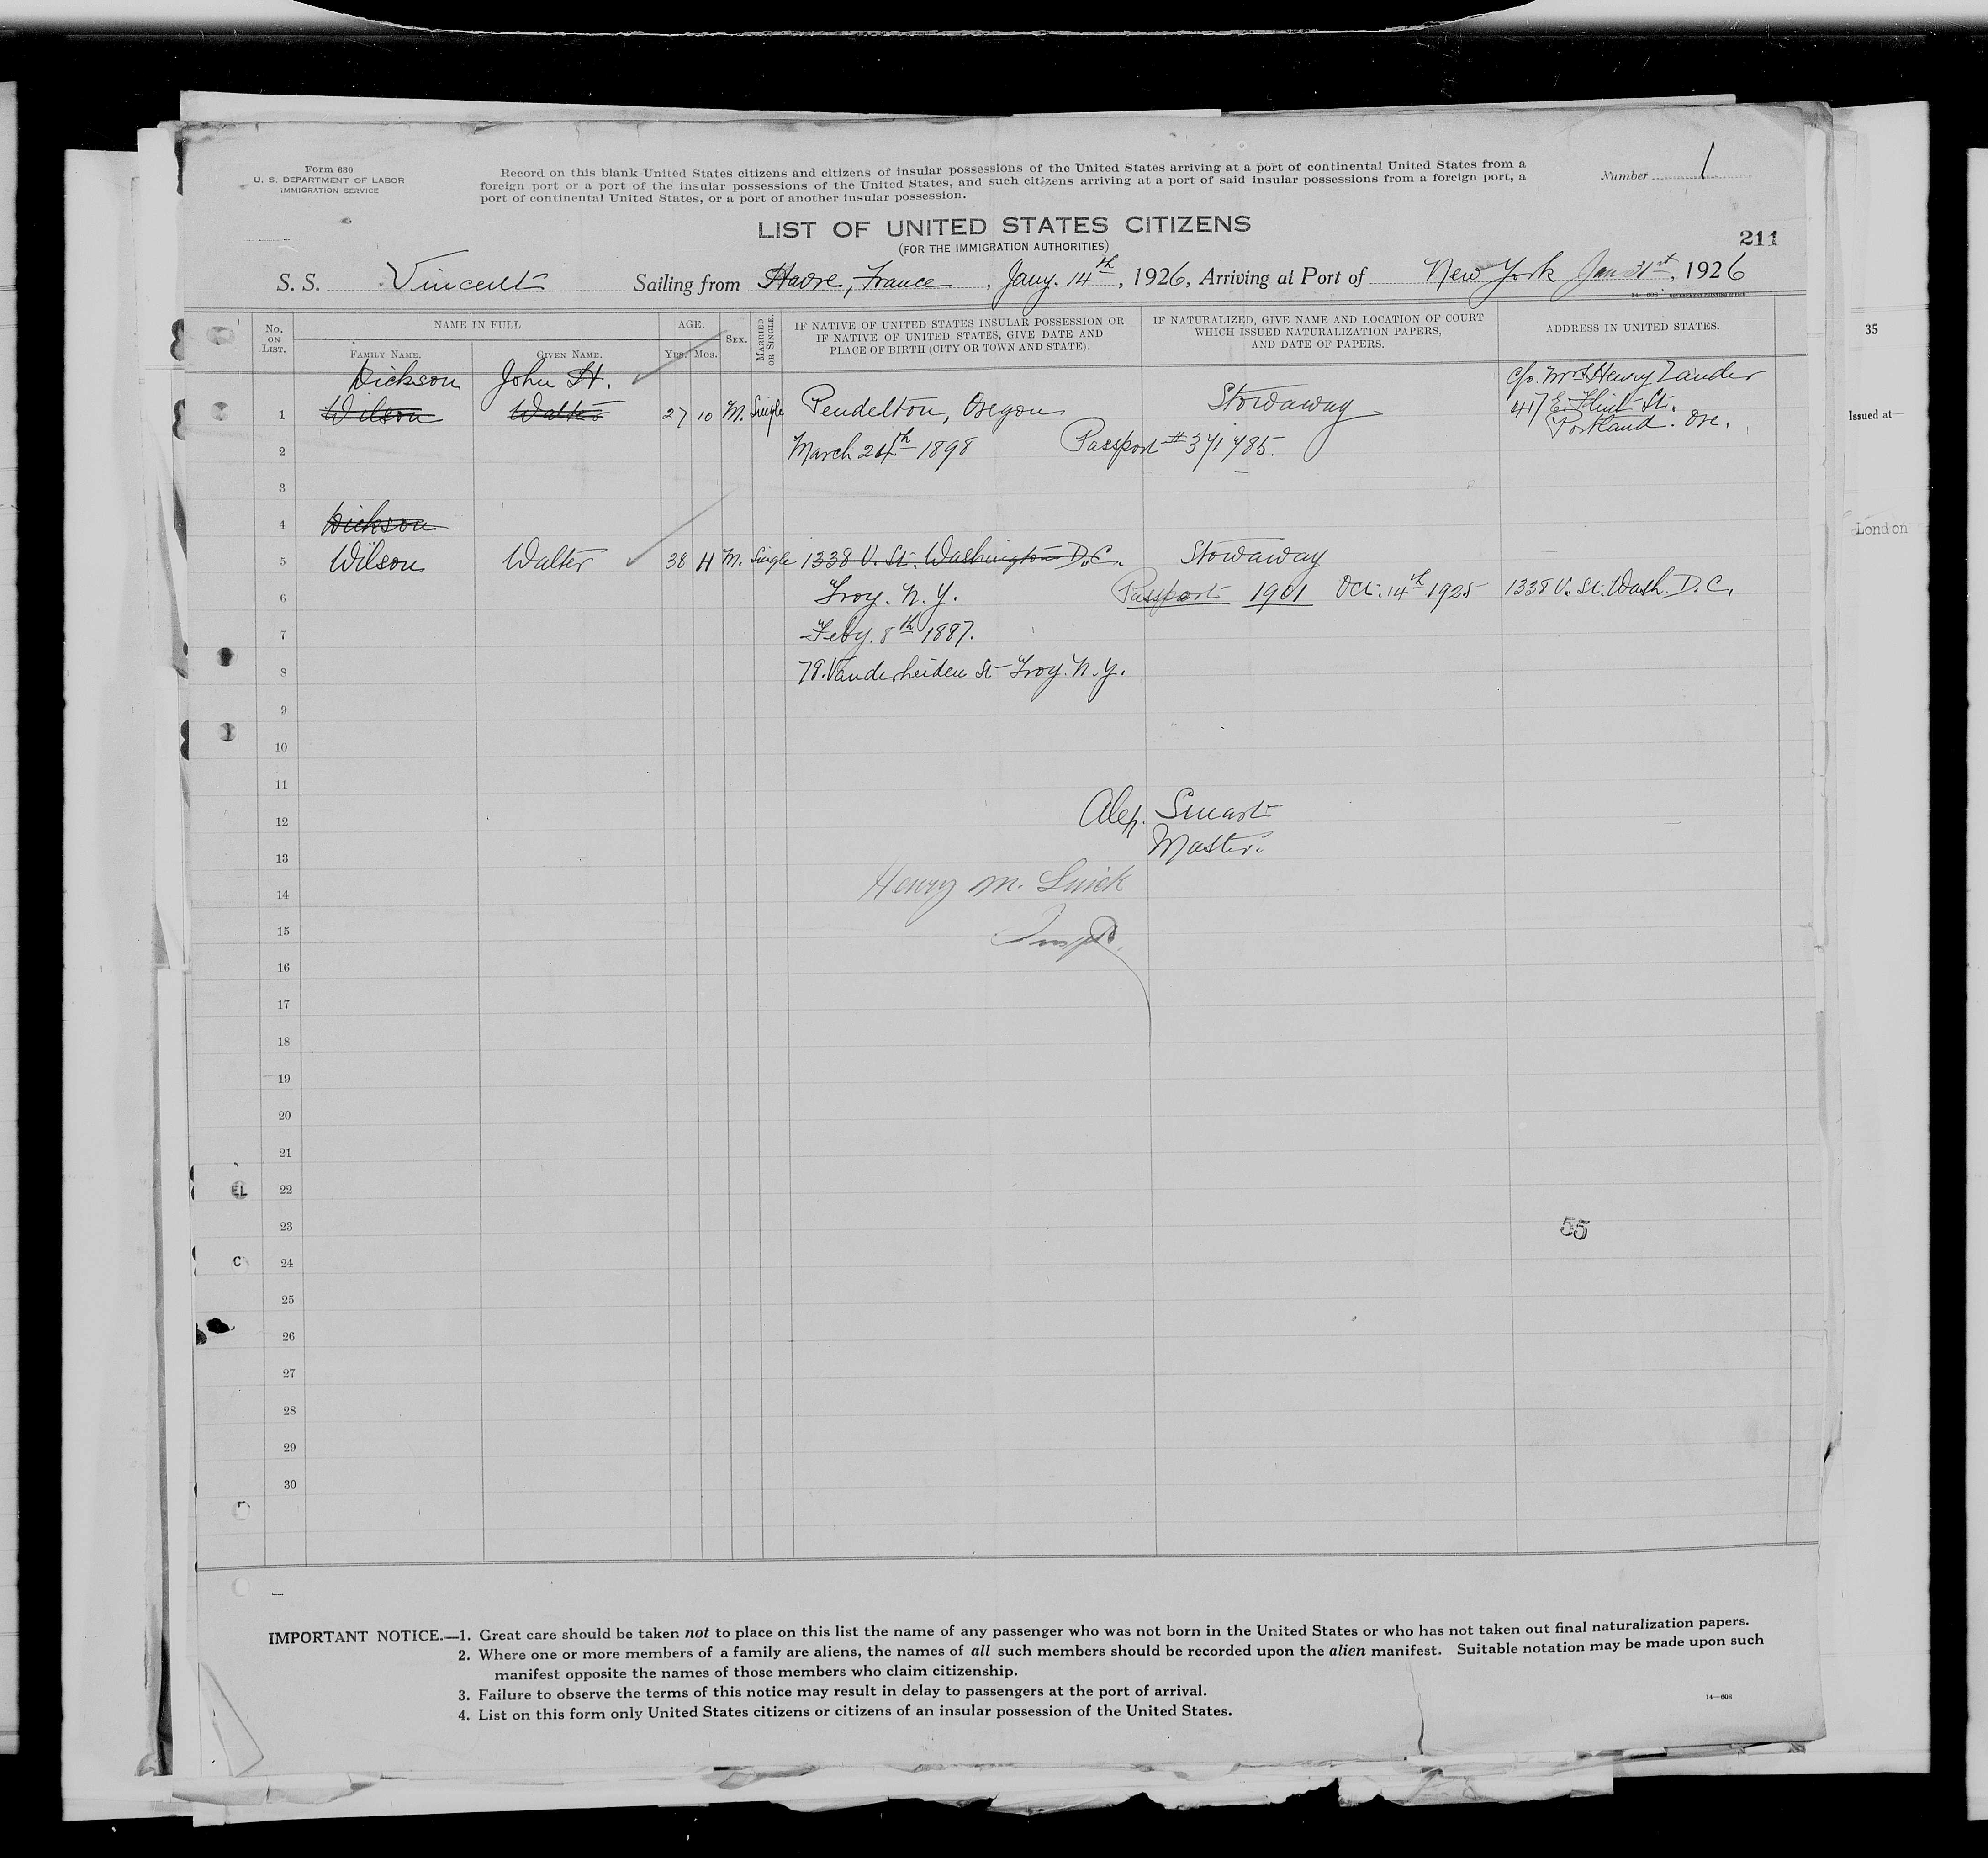 Form 630
U. S. DEPARTMENT OF LABOR
IMMIGRATION SERVICE
Record on this blank United States citizens and citizens of insular possessions of the United States arriving at a port of continental United States from a
foreign port or a port of the insular possessions of the United States, and such citizens arriving at a port of said insular possessions from a foreign port, a
port of continental United States, or a port of another insular possession.
Number 1
LIST OF UNITED STATES CITIZENS
(FOR THE IMMIGRATION AUTHORITIES)
211
S. S. Vincent Sailing from Havre, France, Jany. 14th, 1926, Arriving at Port of New York Jan 31st, 1926
No. ON LIST.
NAME IN FULL
FAMILY NAME. GIVEN NAME.
AGE.
YRS. MOS.
SEX.
MARRIED OR SINGLE.
IF NATIVE OF UNITED STATES INSULAR POSSESSION OR
IF NATIVE OF UNITED STATES, GIVE DATE AND
PLACE OF BIRTH (CITY OR TOWN AND STATE).
IF NATURALIZED, GIVE NAME AND LOCATION OF COURT
WHICH ISSUED NATURALIZATION PAPERS,
AND DATE OF PAPERS.
ADDRESS IN UNITED STATES.
Dickson John H. c/o. Mrs Henry Zander
1 Wilson Walter 27 10 M. Single Pendelton, Oregon Stowaway 417 E. Flint St.
Portland. Ore.
2 March 24th 1898 Passport #
3
4 Dickson
5 Wilson Walter 38 11 M. Single 1338 V. St. Washington D.C. Stowaway
6 Troy. N.Y. Passport 1901 Oct. 14th 1925 1338 V. St. Wash. D.C.
7 Feby. 8th 1887.
8 79. Vanderheiden St Troy. N.Y.
9
10
11
12 Alex. Smart
Master.
13
14 Henry M.
15 Insp
16
17
18
19
20
21
22
23 55
24
25
26
27
28
29
30
IMPORTANT NOTICE.—1. Great care should be taken not to place on this list the name of any passenger who was not born in the United States or who has not taken out final naturalization papers.
2. Where one or more members of a family are aliens, the names of all such members should be recorded upon the alien manifest. Suitable notation may be made upon such
manifest opposite the names of those members who claim citizenship.
3. Failure to observe the terms of this notice may result in delay to passengers at the port of arrival.
4. List on this form only United States citizens or citizens of an insular possession of the United States.
14—608
35
Issued at
London
EL
C